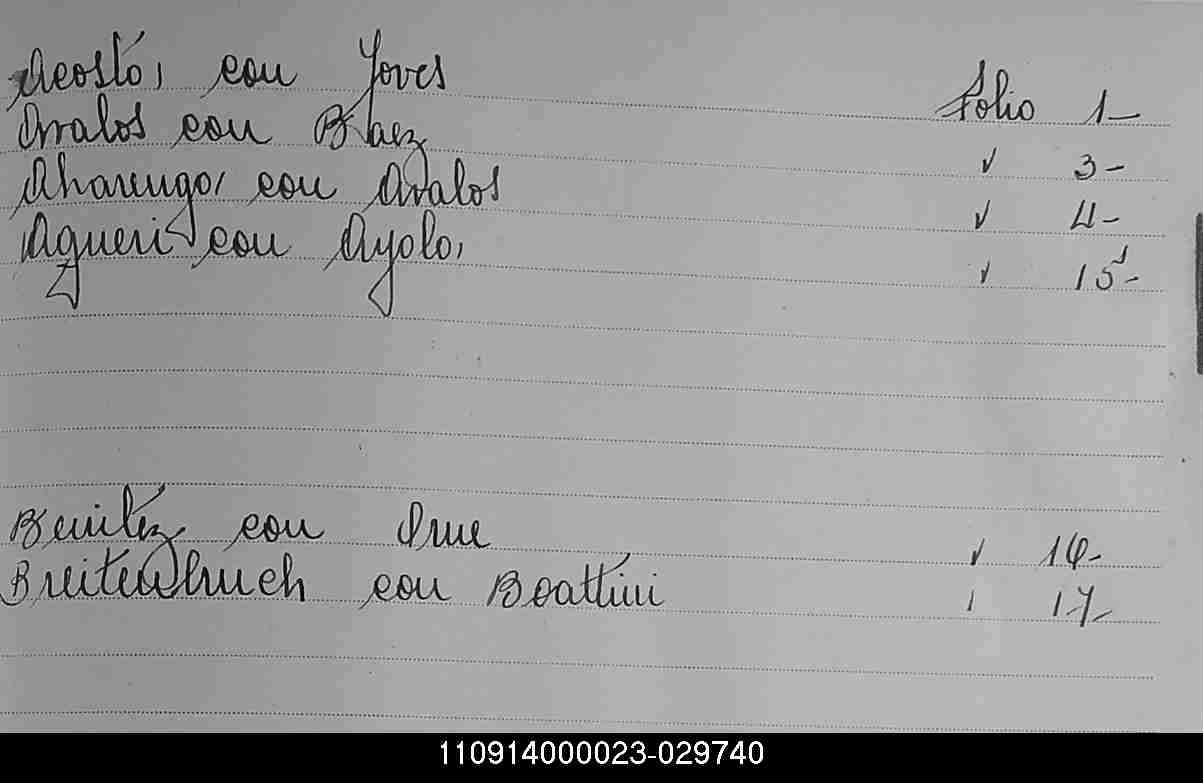 Acosta, con Joves Folio 1-
Avalos con Baez √ 3-
Aharengo, con Avalos √ 4-
Agueri con Ayala, √ 15-
Benitez con Orue √ 16-
Breitembruch con Boattini 17-
110914000023-029740